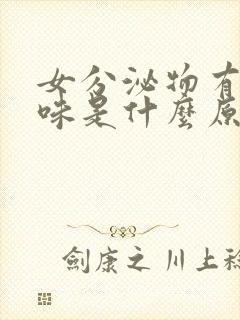 女分泌物有
味是什麼原
劍康之川上稔